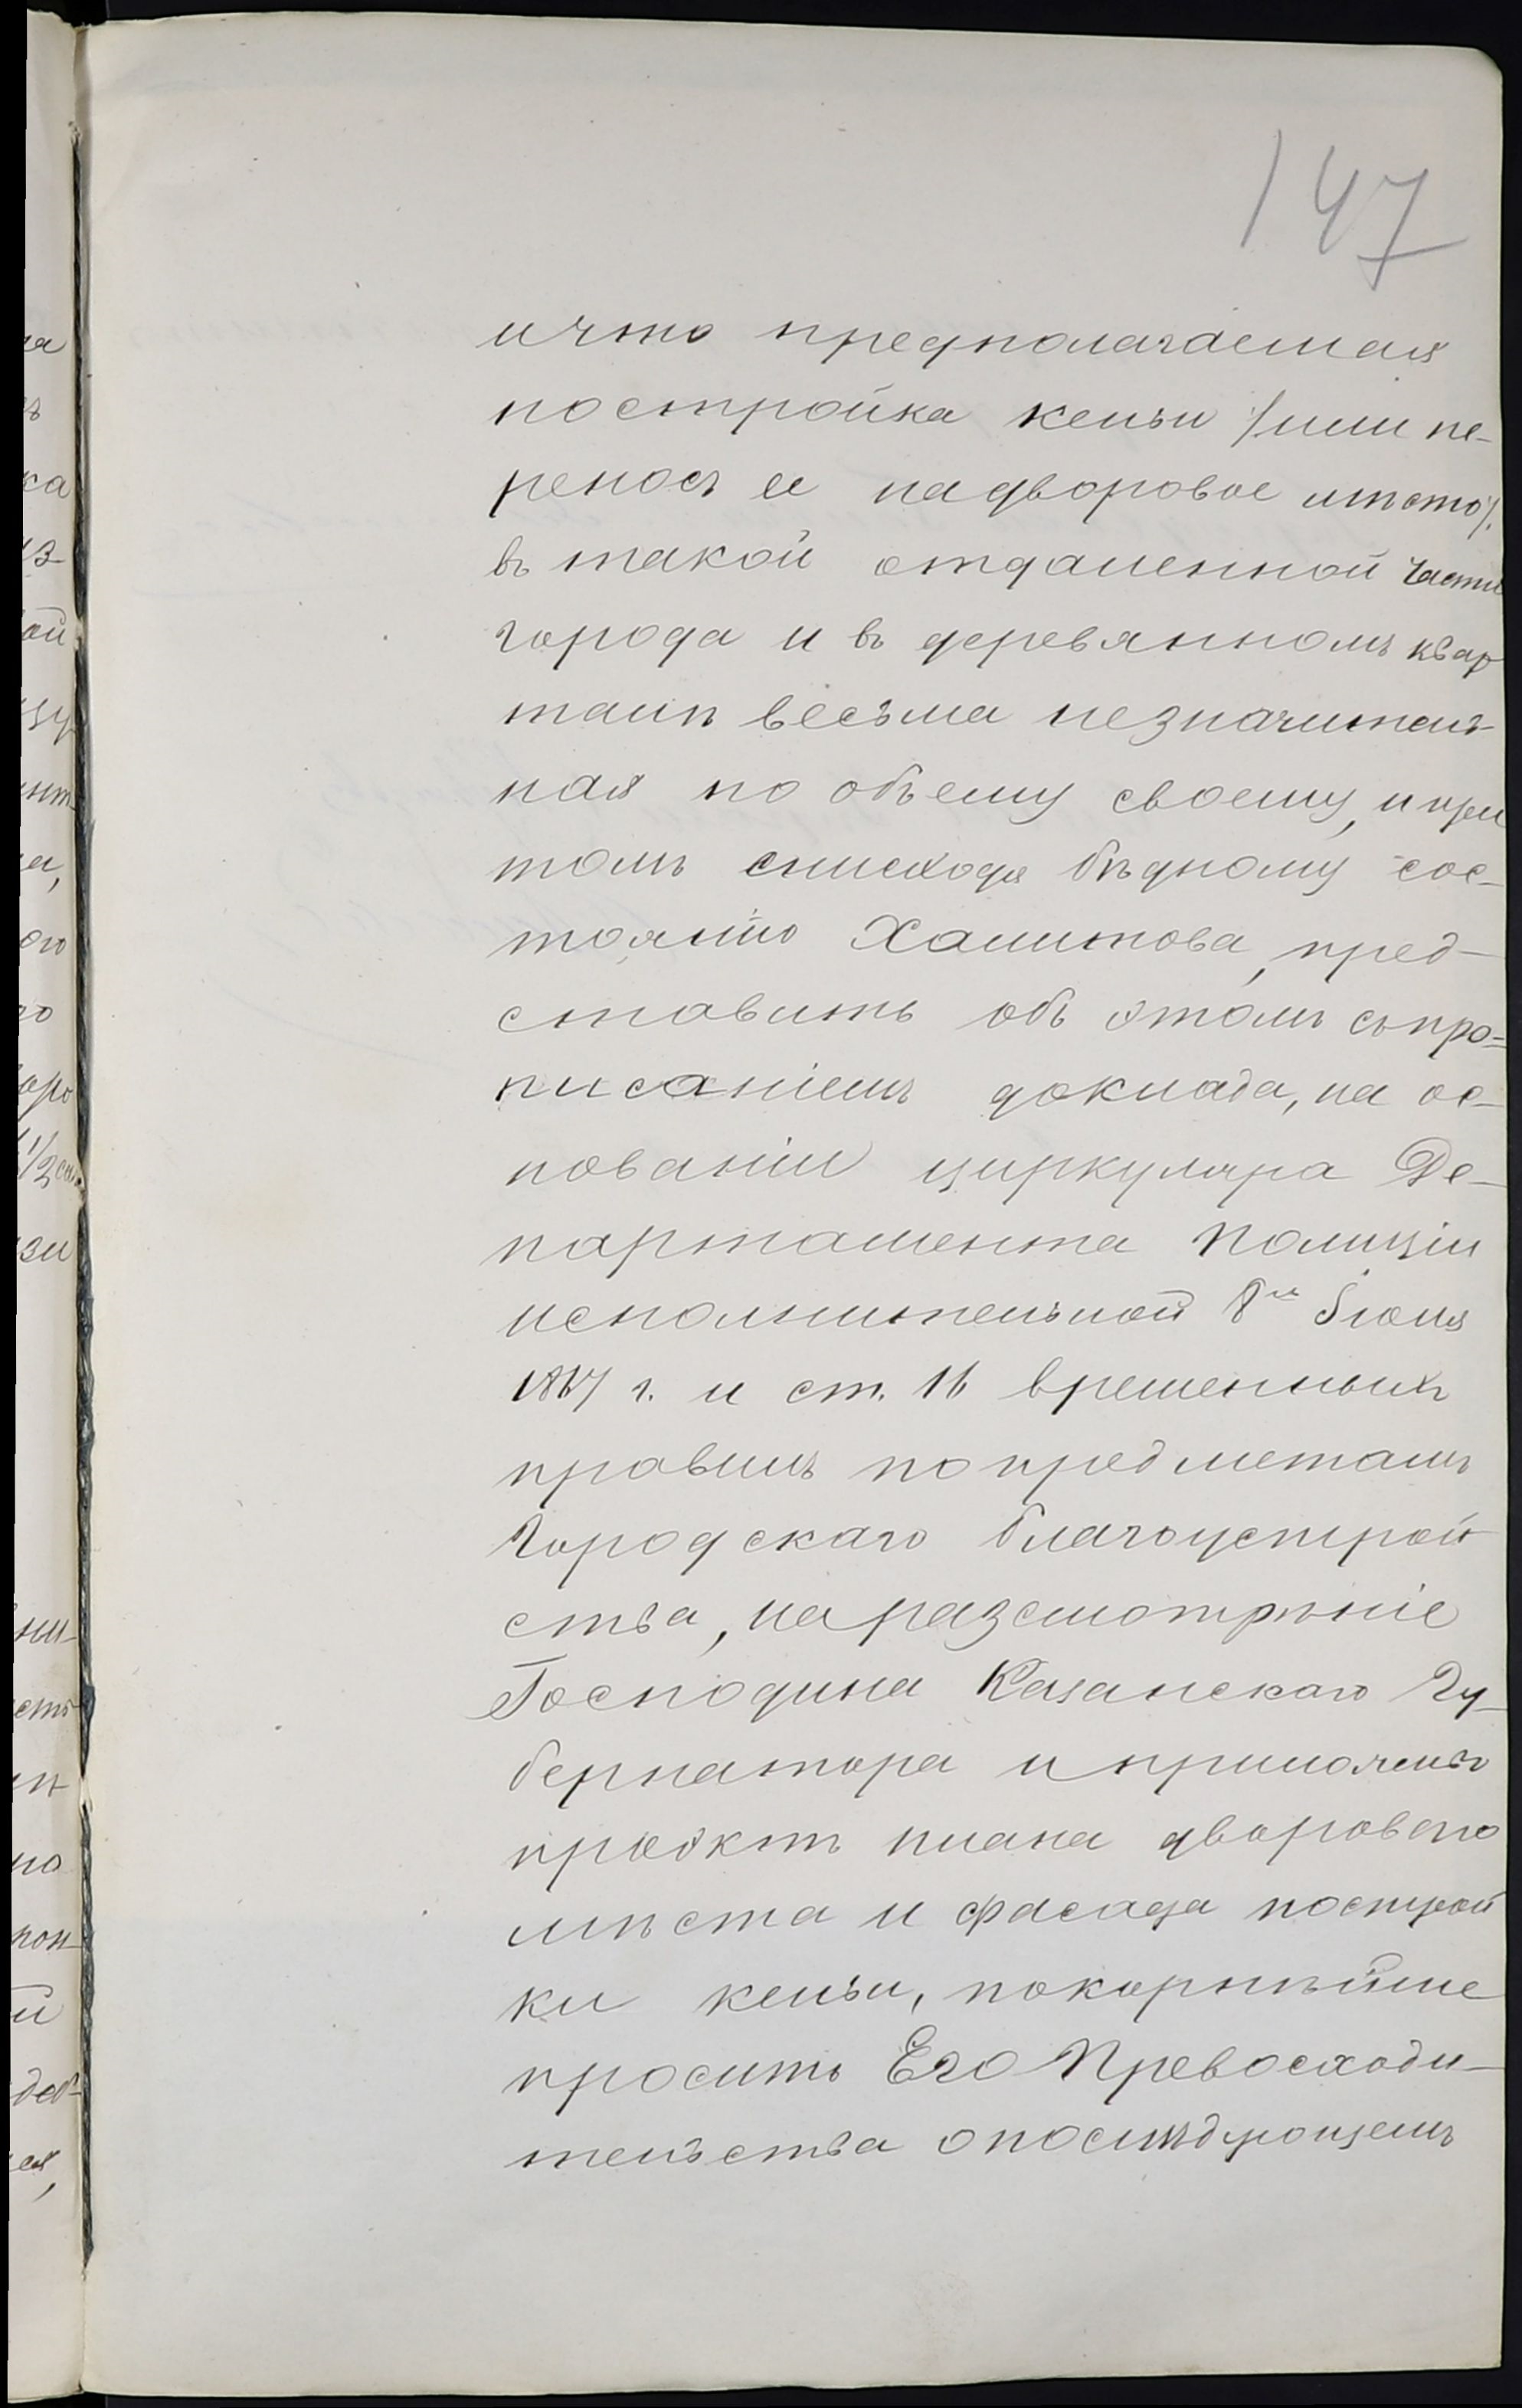 147
и что предполагаемая
постройка кельи /или пе-
реносъ ее на дворовое мѣсто/.
въ такой отдаленной части
города и въ деревянномъ квар
талѣ весьма незначитель-
ная по объему своему, и при
томъ снисходя бѣдному сос-
тоянію Хамитова, пред-
ставить объ этомъ съ про=
писаніемъ доклада, на ос-
нованіи циркуляра Де-
партамента Полиціи
исполнительной 8го Іюля
1867 г. и ст. 16 временныхъ
правилъ по предметамъ
Городскаго благоустрой
ства, на разсмотрѣніе
Господина Казанскаго Гу-
бернатора и приложивъ
проэктъ плана двороваго
мѣста и фасада построй
ки кельи, покорнѣйше
просить Его Превосходи-
тельства о послѣдующемъ